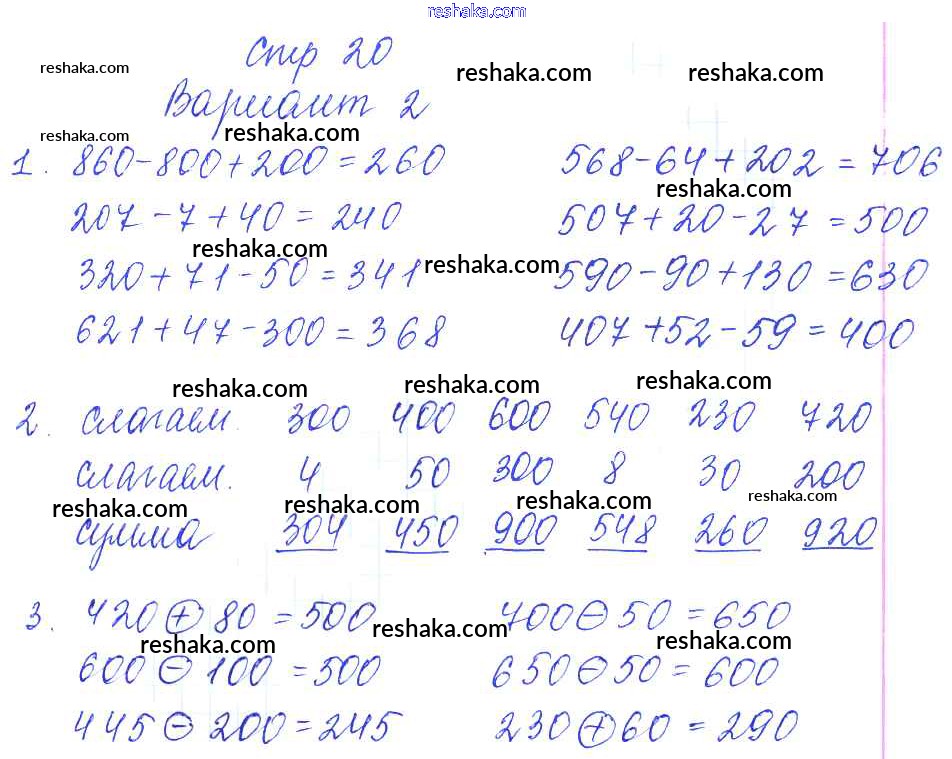 reshaka.com
Стр 20
reshaka.com
reshaka.com
reshaka.com
Вариант 2
reshaka.com
reshaka.com
1. 860-800+200=260 568-64+202=706
reshaka.com
207-7+40=240 507+20-27=500
reshaka.com
reshaka.com
320+71-50=341 590-90+130=630
621+47-300=368 407+52-59=400
reshaka.com
reshaka.com
reshaka.com
2. слагаем. 300 400 600 540 230 720
слагаем. 4 50 300 8 30 200
reshaka.com
reshaka.com
reshaka.com
reshaka.com
сумма 304 450 900 548 260 920
3. 420+80=500 700-50=650
reshaka.com
reshaka.com
reshaka.com
600-100=500 650-50=600
445-200=245 230+60=290